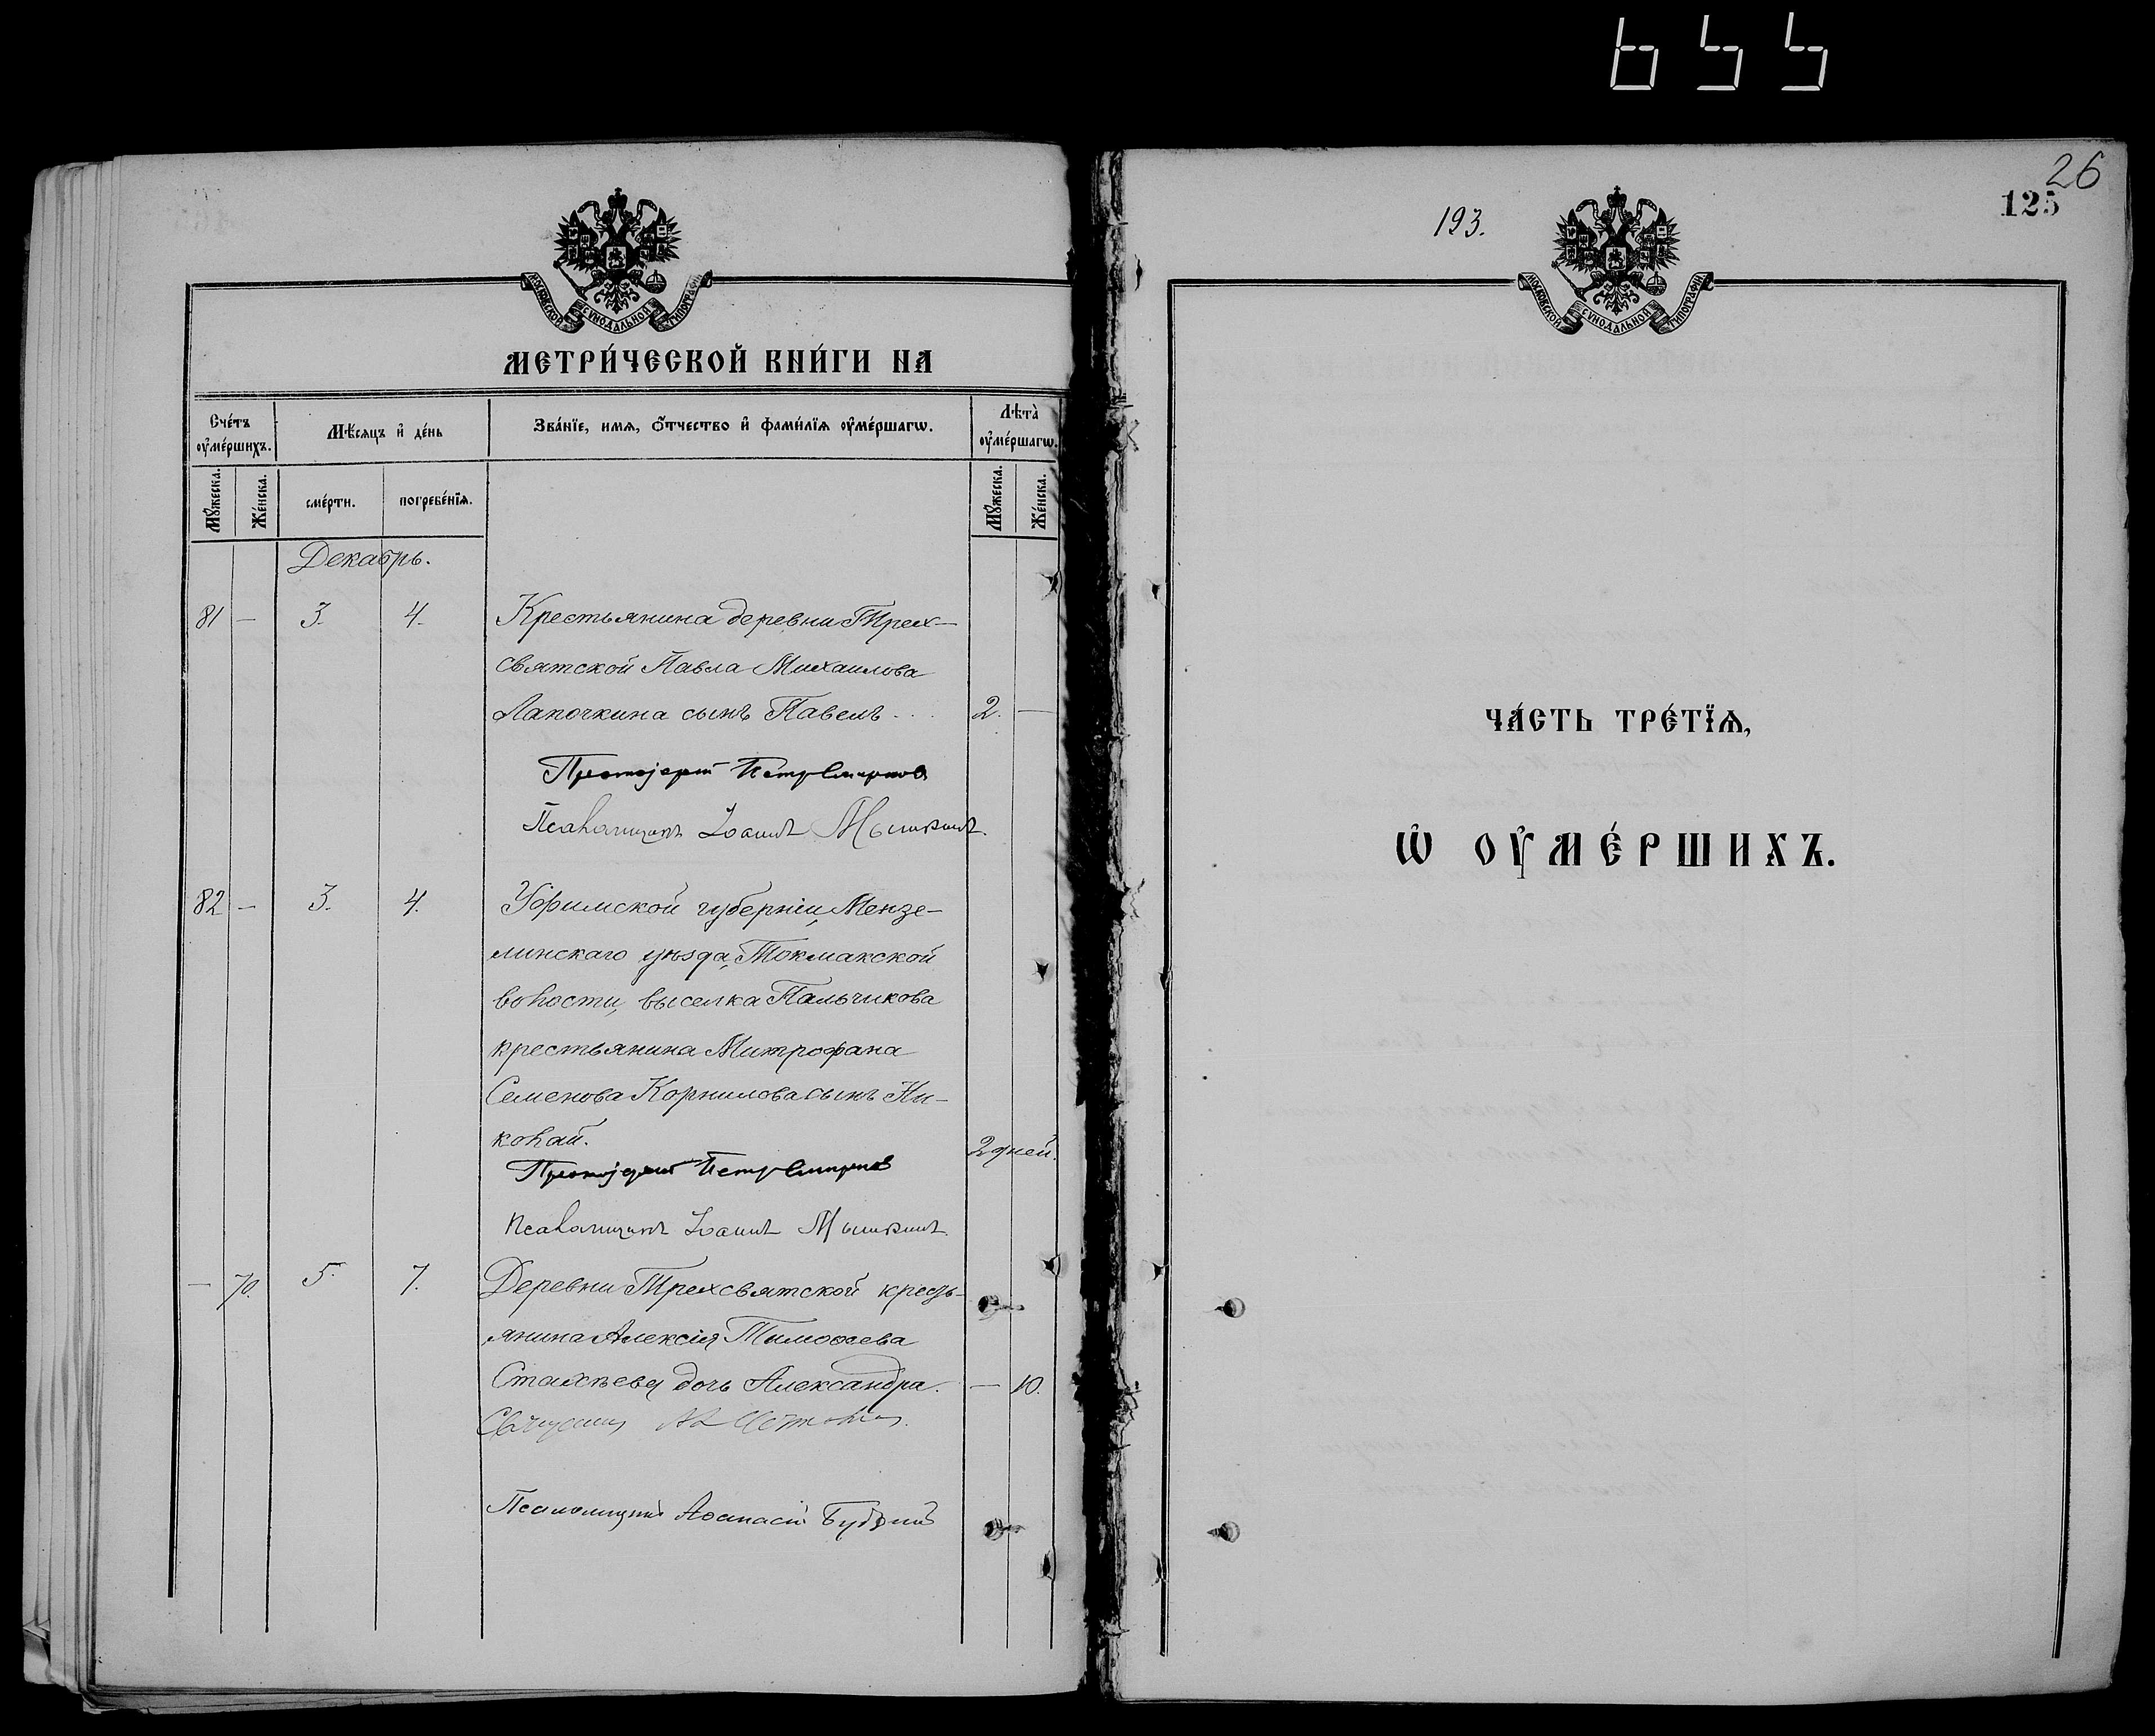 655
МОСКОВСКОЙ СѴНОДАЛЬНОЙ ТИПОГРАФІИ
МЕТРИ́ЧЕСКОЙ КНИ́ГИ НА
Сче́тъ оу҆ме́ршихъ.
Мѣ́сяцъ и҆ де́нь
Зва́нїе, имѧ, ѻ҆́тчество и҆ фами́лїѧ оу҆ме́ршагѡ.
Лѣта̀ оу҆ме́ршагѡ.
Мꙋ́жеска.
Же́нска.
сме́рти.
погребе́нїѧ.
Мꙋ́жеска.
Же́нска.
Декабрь.
81 — 3. 4. Крестьянина деревни Трех-
святской Павла Михаилова
Лапочкина сынъ Павелъ . . . 2. —
Протоіерей Петръ Смирновъ
Псаломщикъ Іоаннъ Мышкинъ.
82 — 3. 4. Уфимской губерніи, Мензе-
линскаго уѣзда, Токмакской
волости, выселка Пальчикова
крестьянина Митрофана
Семенова Корнилова сынъ Ни-
колай. 2 дней.
Протоіерей Петръ Смирновъ
Псаломщикъ Іоаннъ Мышкинъ.
— 70. 5. 7. Деревни Трехсвятской кресть-
янина Алексія Тимоѳеева
Стахѣева дочь Александра. — 10.
Священникъ
Псаломщикъ Аѳанасій
26
125
193.
МОСКОВСКОЙ СѴНОДАЛЬНОЙ ТИПОГРАФІИ
ЧА́СТЬ ТРЕ́ТЇѦ,
Ѡ҆ ОУ҆МЕ́РШИХЪ.